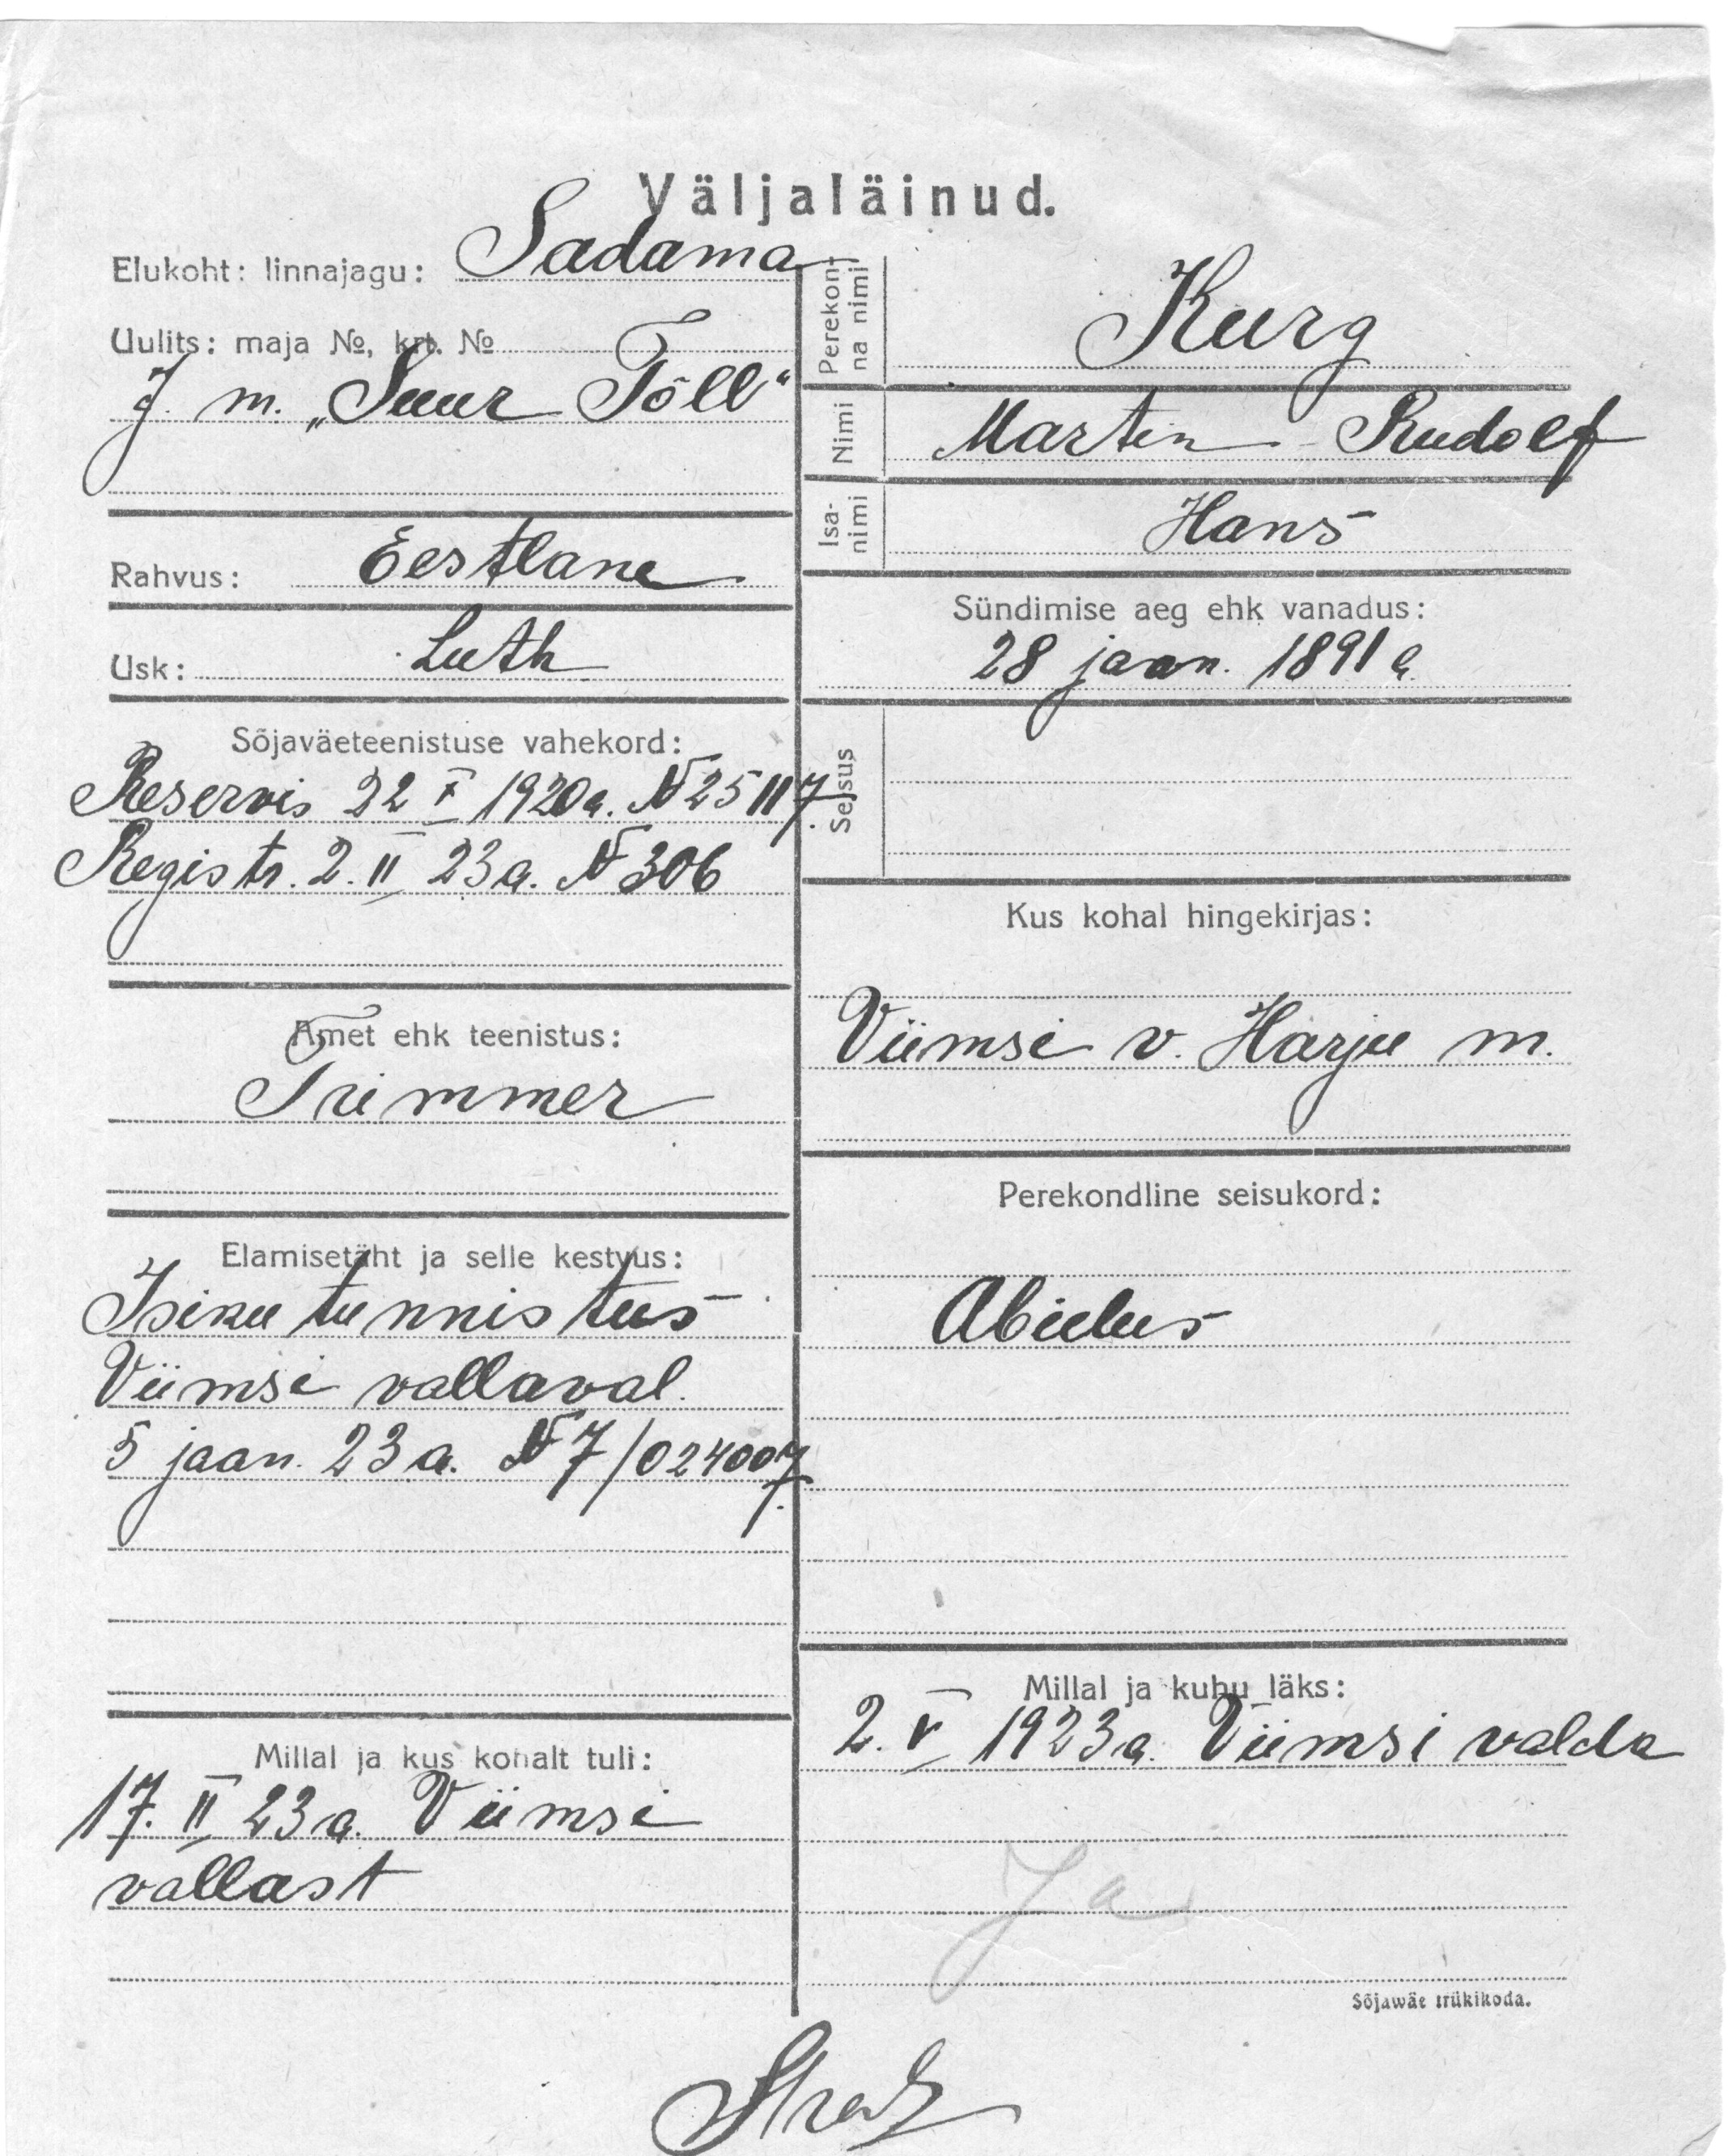 Väljaläinud.
Elukoht: linnajagu: Sadama
Uulits: maja №, krt. №
J. m. „Suur Tõll“
Rahvus: Eestlane
Usk: Luth
Sõjaväeteenistuse vahekord:
Reservis 22 X 1920a. № 25117.
Registr. 2. II 23a. № 306
Amet ehk teenistus:
Trimmer
Elamisetäht ja selle kestvus:
Isikutunnistus
Viimsi vallaval.
5 jaan. 23 a. № 7/024007.
Millal ja kus kohalt tuli:
17. II 23 a. Viimsi
vallast
Perekon-
na nimi
Kurg
Nimi
Martin-Rudolf
Isa-
nimi
Hans
Sündimise aeg ehk vanadus:
28 jaan. 1891 a.
Seisus
Kus kohal hingekirjas:
Viimsi v. Harju m.
Perekondline seisukord:
Abielus
Millal ja kuhu läks:
2. V 1923 a. Viimsi valda
Ja
Sõjawäe trükikoda.